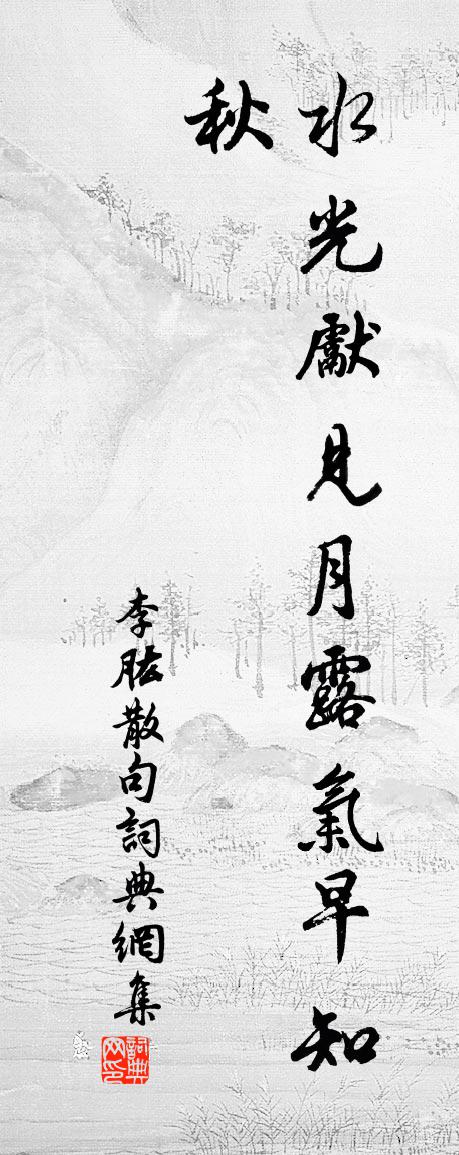 水光獻見月露氣早知
秋
李肱散句詞典網集
詞典
网印